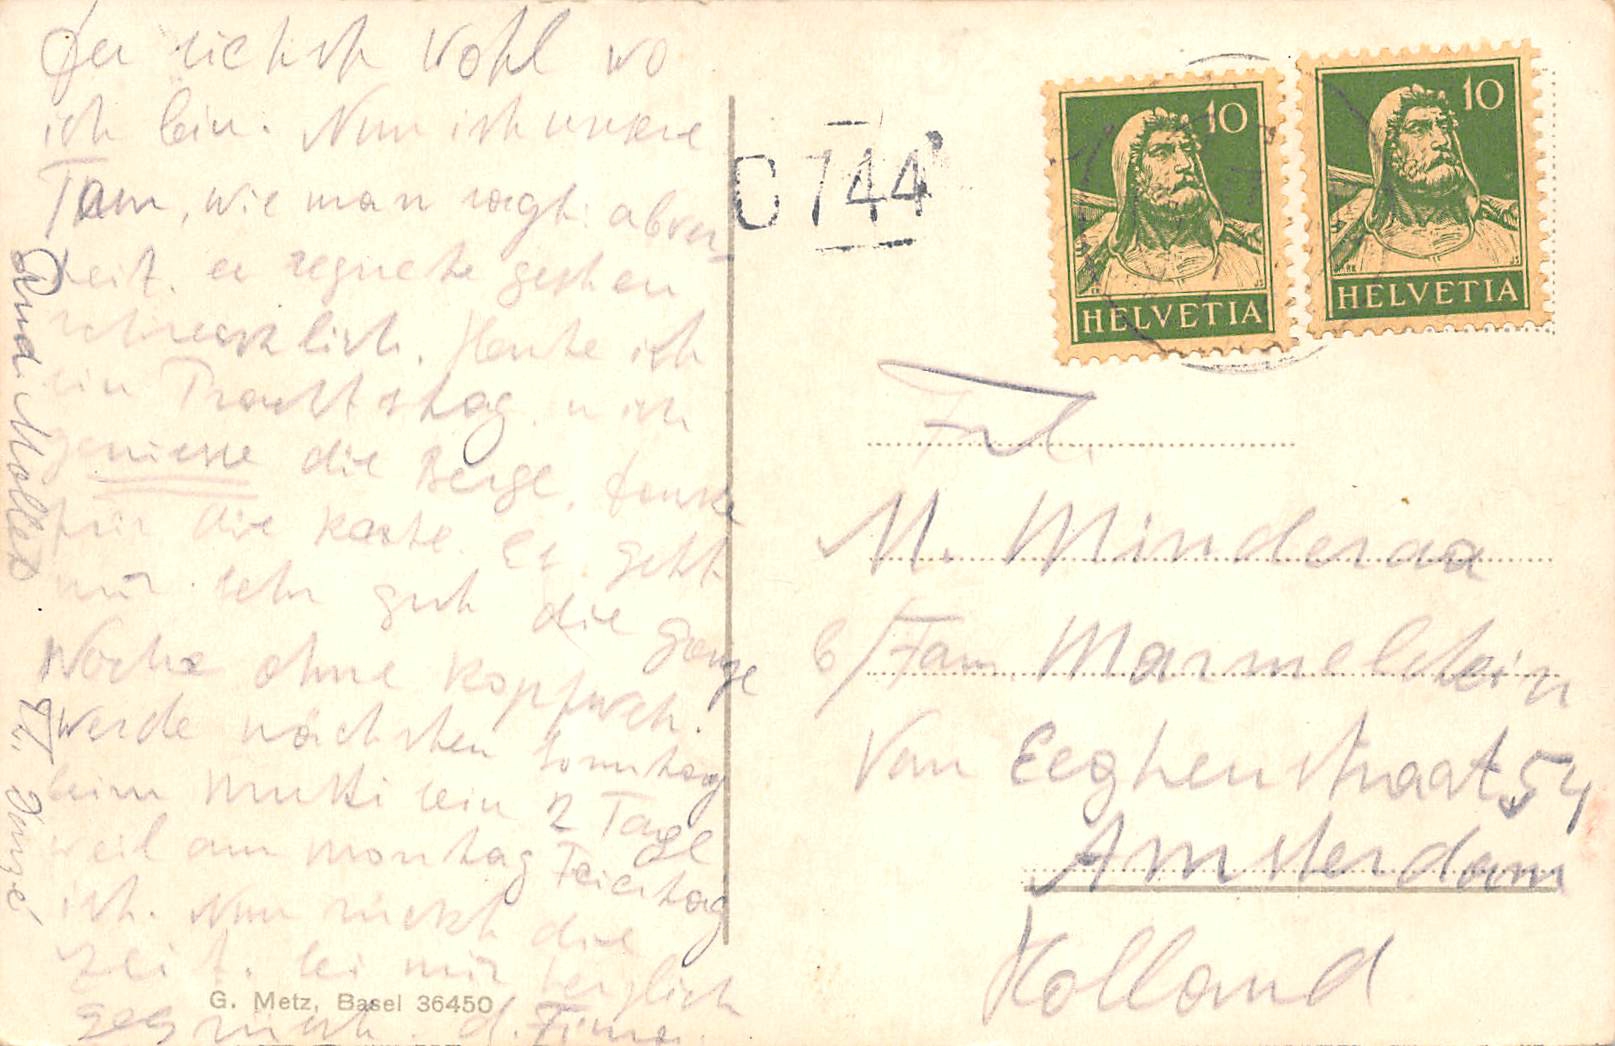 Du siehst wohl wo
ich bin. Nun ist unsere
Tam, wie man sagt: abver-
reist. es regnete gestern
schrecklich. Heute ist
ein Prachtstag, u ich
geniesse die Berge, danke
für die Karte. Es geht
mir sehr gut die ganze
Woche ohne Kopfweh.
Werde nächsten Sonntag
beim Mutti sein 2 Tage
weil am Montag Feiertag
ist. Nun rückt die
Zeit. sei mir herzlich
gegrüsst. d.
Rudi Mollet
G. Metz, Basel 36450
C 744
10
HELVETIA
10
HELVETIA
Frl.
M. Minderaa
b/Fam. Marmelstein
Van Eeghenstraat 54
Amsterdam
Holland